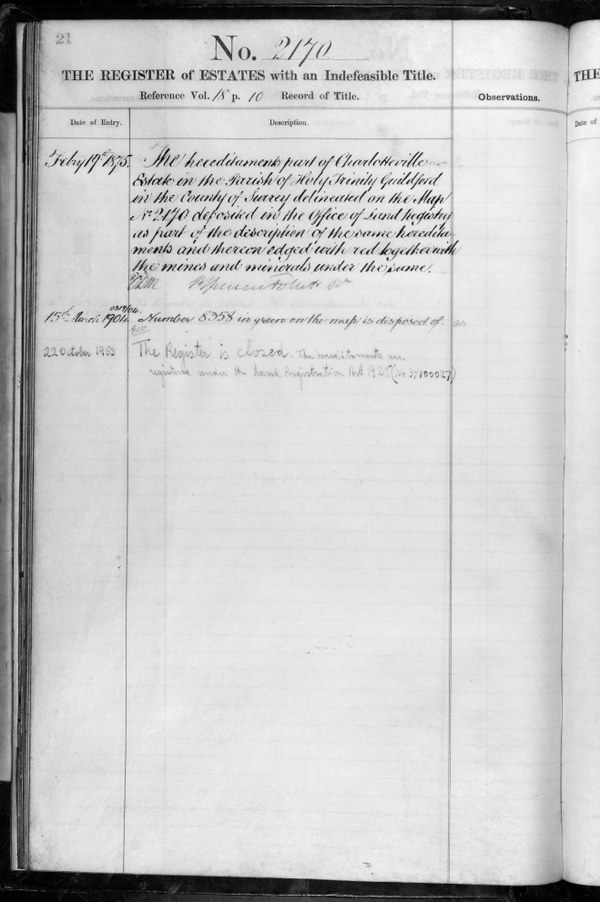 21
No. 2170
THE REGISTER of ESTATES with an Indefeasible Title.
Reference Vol. 18 p. 10 Record of Title.
Observations.
Date of Entry.
Description.
Feby 19th 1875. The hereditaments part of Charlotteville
Estate in the Parish of Holy Trinity Guildford
in the County of Surrey delineated on the Map
No. 2170 deposited in the Office of Land Registry
as part of the description of the same heredita-
ments and thereon edged with red together with
the mines and minerals under the same.
15th March 1904 Number 8358 in green on the map is disposed of
22 October 1953 The Register is closed. The hereditaments are
registered under the Land Registration Act 1925 (No. SY100027)
THE
Date of